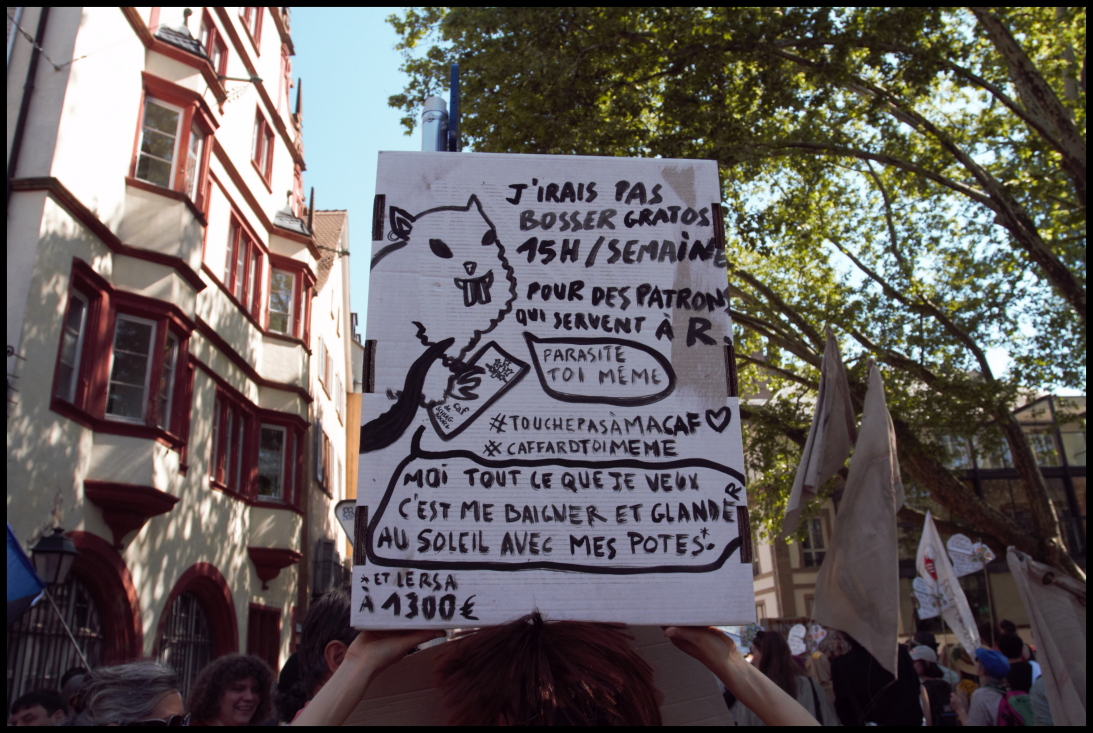 J'IRAIS PAS
BOSSER GRATOS
15H/SEMAINE
POUR DES PATRONS
QUI SERVENT À R.
PARASITE
TOI MÊME
#TOUCHEPASÀMACAF♡
#CAFFARDTOIMEME
MOI TOUT CE QUE JE VEUX
C'EST ME BAIGNER ET GLANDER
AU SOLEIL AVEC MES POTES*.
*ET LE RSA
À 1300€